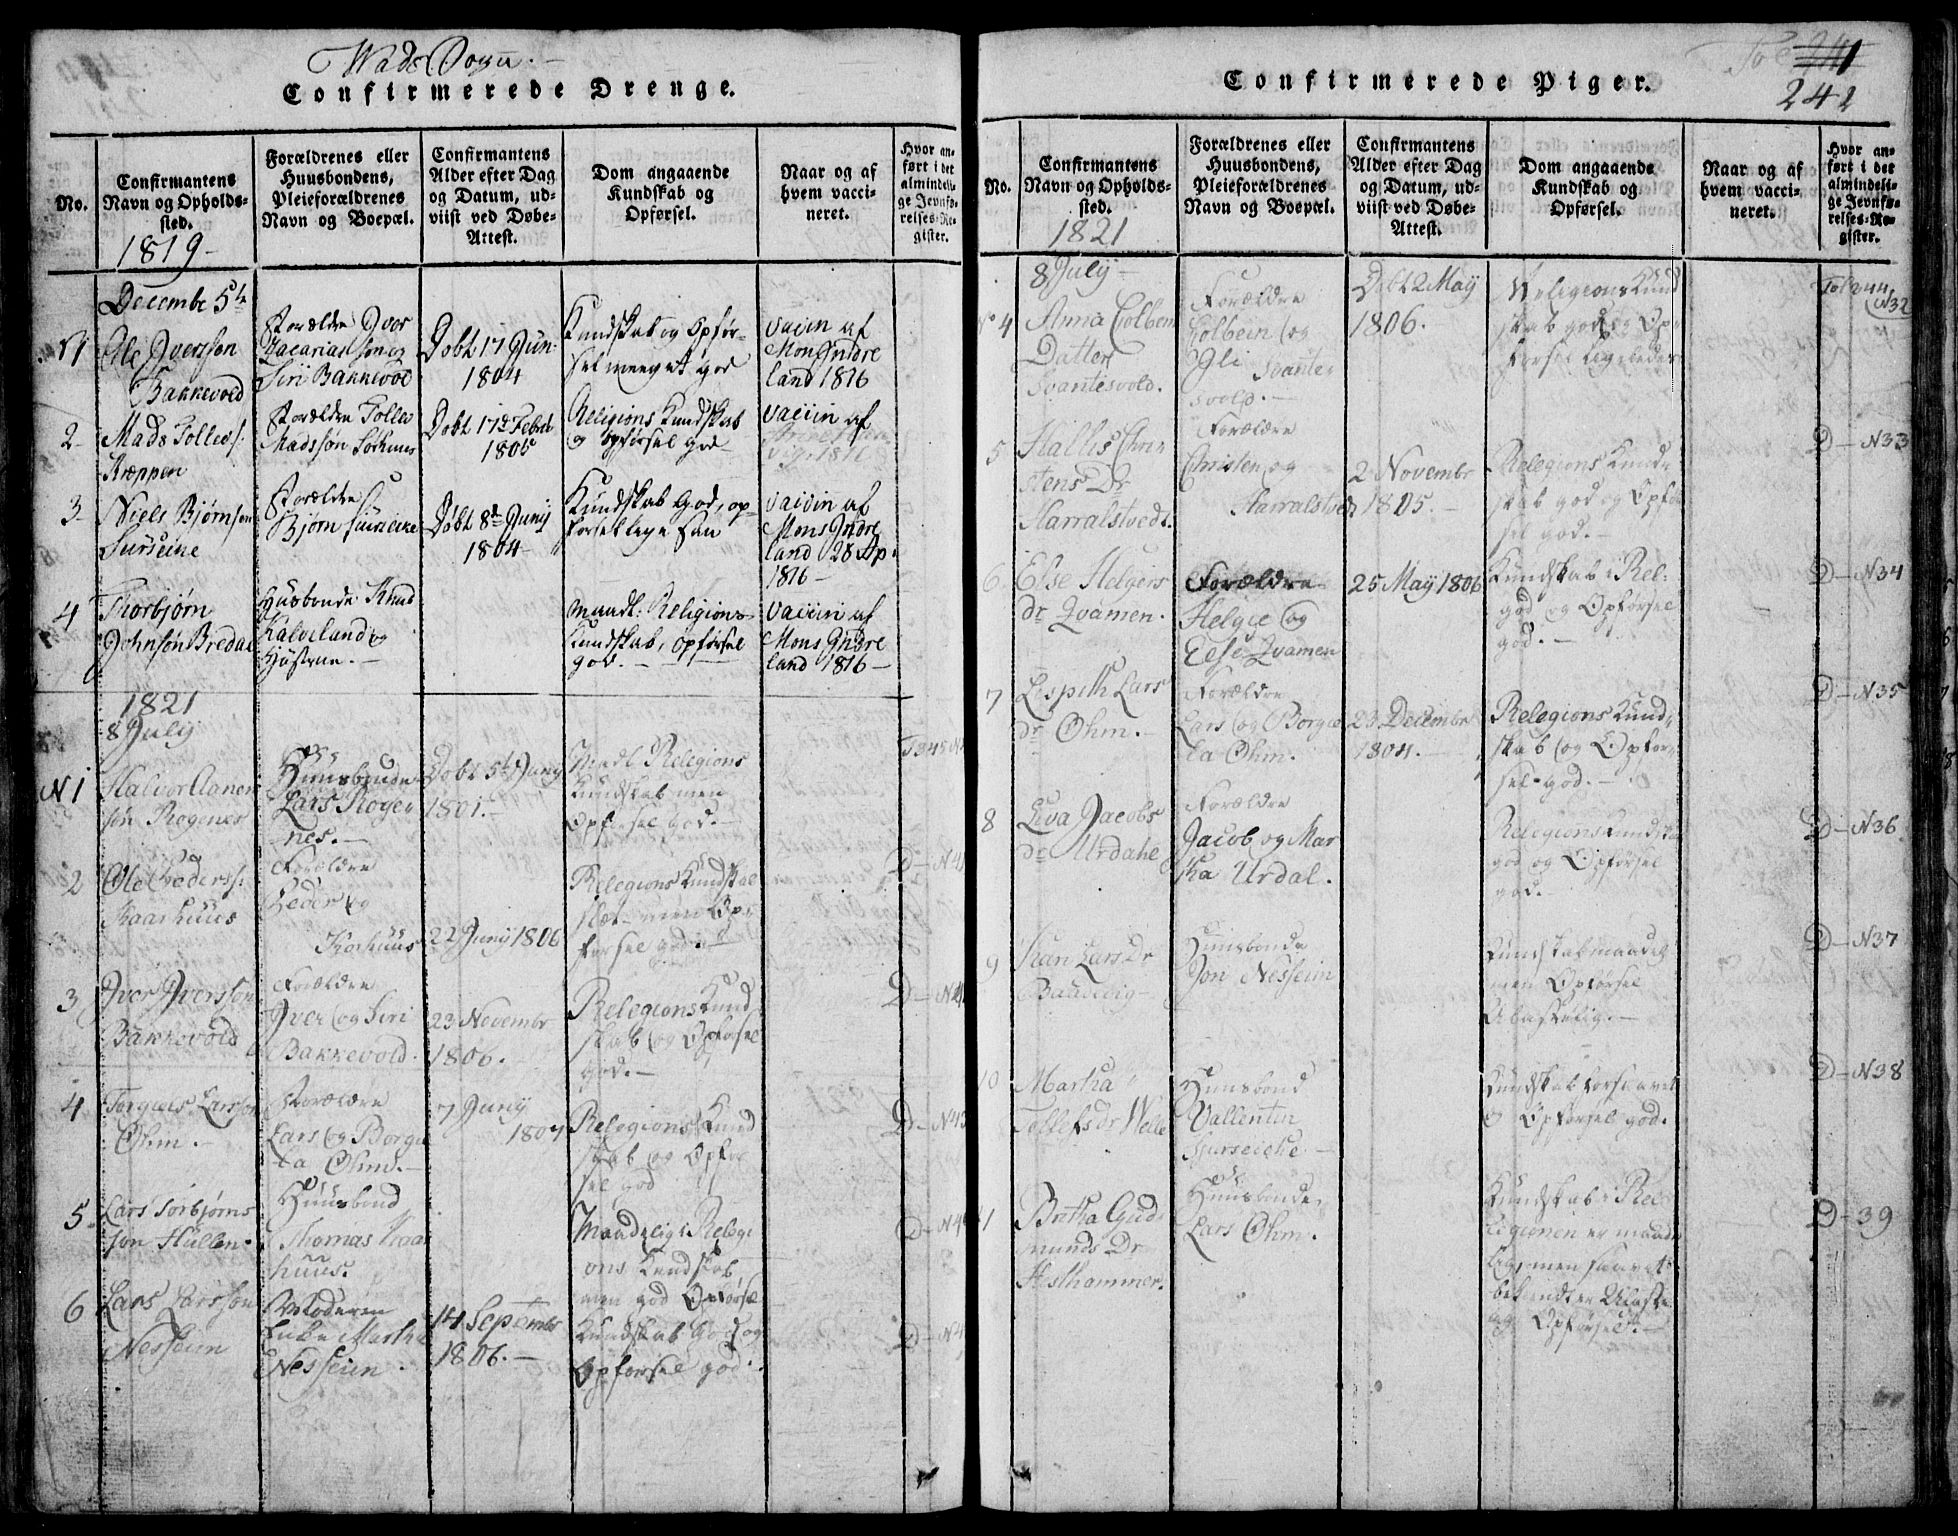 Wads Sogn.
Confirmerede Drenge.
No.
Confirmantens
Navn og Opholds-
sted.
1819
Forældrenes eller
Huusbondens,
Pleieforældrenes
Navn og Boepæl.
Confirmantens
Alder efter Dag
og Datum, ud-
viist ved Døbe-
Attest.
Dom angaaende
Kundskab og
Opførsel.
Naar og af
hvem vacci-
neret.
Hvor an-
ført i det
almindeli-
ge Jevnfø-
relses-Re-
gister.
Decembr 5te
1
Ole Iversson
Bakkevold
Forældre Iver
Zacariasson og
Siri Bakkevold
Døbt 17 Jun.
1804
Kundskab og Opfør-
sel meeget god
Vaccin af
Mons Indre
land 1816
2
Mads Tollevs:
Kreppen
Forældre Tollev
Madsson
Døbt 17de Febr
1805
Religions Kundskab
og opførsel god
vaccin af
1816
3
Niels Bjørnson
Surseine
Forældre
Bjørn
Døbt 8de Junij
1804
Kundskab God, op-
førsel lige saa
vaccin af
Mons Indre
land 28 Ap.
1816
4
Thorbjørn
Johnsøn Bredal
Husbonde Knud
Kalveland og
Hustrue.
Maadl: Religions
Kundskab, opførsel
god.
vaccin af
Mons Indre
land 1816
1821
8 July
N 1
Halvor Aanen
søn Rogenes
Huusbonde
Lars Rogen
nes.
Døbt 5te Juny
1801.
Maadl Relegions
Kundskab men
Opførsel god.
2
Ole Peders:
Kaarhuus
Forældre
Peder og
Korhuus
22 Junij 1806
Relegions Kundskab
slet men Op-
førsel god.
3
Iver Iversson
Bakkevold
Forældre
Iver og Siri
Bakkevold.
23 Novembr
1806.
Relegions Kund
skab og Opførsel
god.
4
Torgiels Larsson
Ohm.
Forældre
Lars og Borgil
la Ohm.
7 Junij
1807
Relegions Kund
skab og Opfør
sel god
D - N43
5
Lars Torbjørns
søn Hullen.
Huusbond
Thomas Kaar
huus.
Maadelig i Relegi
ons Kundskab
men god Opførsel
6
Lars Larsson
Nesseim
Moderen
Enke Martha
Nesseim
14 Septembr
1806.
Kundskab God og
Opførsel god.
Confirmerede Piger.
241
242
No.
Confirmantens
Navn og Opholds-
sted.
1821
Forældrenes eller
Huusbondens,
Pleieforældrenes
Navn og Boepæl.
Confirmantens
Alder efter Dag
og Datum, ud-
viist ved Døbe-
Attest.
Dom angaaende
Kundskab og
Opførsel.
Naar og af
hvem vacci-
neret.
Hvor an-
ført i det
almindeli-
ge Jevnfø-
relses-Re-
gister.
8 July
No 4
Anna Colben
Datter
Svantesvold.
Forældre
Colbein og
Gli Svante
svold.
Døbt 2 May
1806.
Religions Kund
skab god og Op-
førsel ligeledes
Fol 244
N32
5
Hallis Chri
stens Dr
Harralstvedt.
Forældre
Christen og
Harralstvedt
2 Novembr
1805.
Relegions Kund
skab god og Opfør
sel god.
D - N33
6
Else Helgeis
dr Qvamen.
Forældre
Helge og
Else Qvamen
25 May 1806
Kundskab i Rel:
god og Opførsel
god.
D - N34
7
Lispeth Lars
dr Ohm.
Forældre
Lars og Borgil
la Ohm.
23 Decembr
1804.
Relegions Kund
skab og Opfør-
sel god.
D - N35
8
Eva Jacobs
dr Urdahl
Forældre
Jacob og Mar
tha Urdal.
Relegions Kundskab
god og Opførsel
god.
D - N36
9
Kari Lars Dr
Huusbonde
Jon Nesseim
Kundskab maadel
men Opførsel
Ulastelig.
D - N37
10
Martha
Tollefs dr Welle
Huusbond
Vallentin
Kundskab forsvaret
og Opførsel god.
D - N38
11
Bretha Gud
munds Dr
Hesthammer.
Huusbonde
Lars Ohm.
Kundskab i Re
ligionen er maade
lig, men
Opførsel.
D - 39